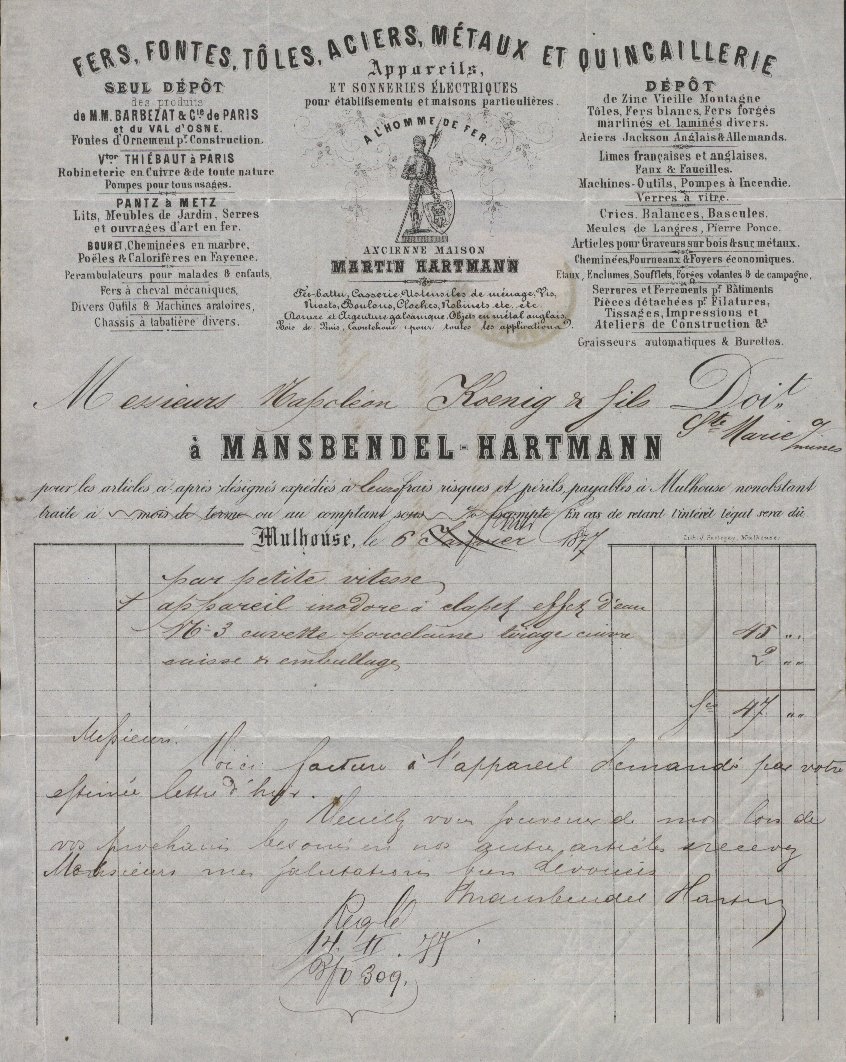 FERS, FONTES, TÔLES, ACIERS, MÉTAUX ET QUINCAILLERIE
SEUL DÉPÔT
des produits
de M.M. BARBEZAT & Cie de PARIS
et du VAL D'OSNE.
Fontes d'Ornement pr. Construction.
Vtor THIÉBAUT à PARIS
Robineterie en Cuivre & de toute nature
Pompes pour tous usages.
PANTZ à METZ
Lits, Meubles de Jardin, Serres
et ouvrages d'art en fer.
BOURET, Cheminées en marbre,
Poëles & Calorifères en Fayence.
Perambulateurs pour malades & enfants,
Fers à cheval mécaniques,
Divers Outils & Machines aratoires,
Chassis à tabatière divers.
Appareils,
ET SONNERIES ÉLECTRIQUES
pour établissements et maisons particulières.
A L'HOMME DE FER.
ANCIENNE MAISON
MARTIN HARTMANN
Fer-battu, Casserie, Ustensiles de ménage, Vis,
Rivets, Boulons, Cloches, Robinets etc. etc.
Dorure et Argenture galvanique, Objets en métal anglais,
Bois de Buis, Caoutchouc (pour toutes les applications)
DÉPÔT
de Zinc Vieille Montagne
Tôles, Fers blancs, Fers forgés
martinés et laminés divers.
Aciers Jackson Anglais & Allemands.
Limes françaises et anglaises,
Faux & Faucilles.
Machines-Outils, Pompes à Incendie.
Verres à vitre.
Crics, Balances, Bascules.
Meules de Langres, Pierre Ponce.
Articles pour Graveurs sur bois & sur métaux.
Cheminées, Fourneaux & Foyers économiques.
Etaux, Enclumes, Soufflets, Forges volantes & de campagne,
Serrures et Ferrements pr. Bâtiments
Pièces détachées pr. Filatures,
Tissages, Impressions et
Ateliers de Construction &a
Graisseurs automatiques & Burettes.
Messieurs Napoléon Koenig & fils Doit
Ste Marie a/mines
à MANSBENDEL-HARTMANN
pour les articles ci après désignés expédiés à leurs frais risques et périls, payables à Mulhouse nonobstant
traite à mois de terme ou au comptant sous escompte En cas de retard l'intérêt légal sera dû
Mulhouse, le 6 Janvier 1877
par petite vitesse
1 appareil inodore à clapet effet d'eau
No 3 cuvette porcelaine tirage cuivre 45 "
caisse & emballage 2 "
fcs 47 "
Messieurs.
Voici facture à l'appareil demandé par votre
estimée lettre d'hier.
Veuillez vous souvenir de moi lors de
vos prochains besoins en nos autres articles & recevez
Messieurs mes salutations bien dévouées
Mansbendel Hartm
Reglé
14. II. 77.
309.